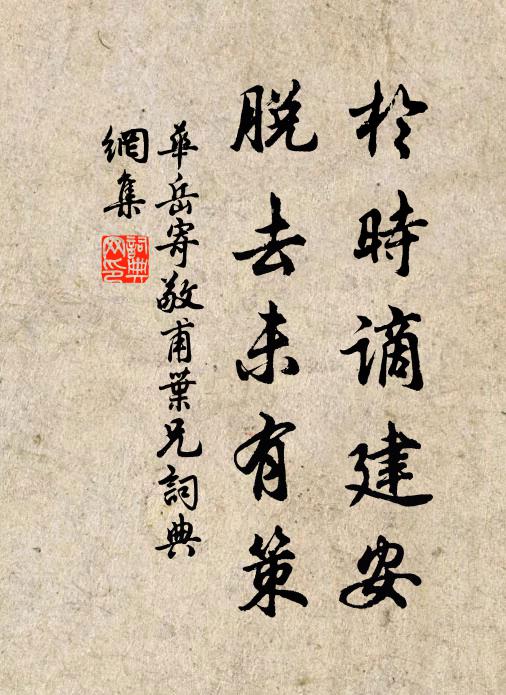 於時謫建安
脱去未有策
華岳寄敬甫葉兄詞典
網集
詞典
网印